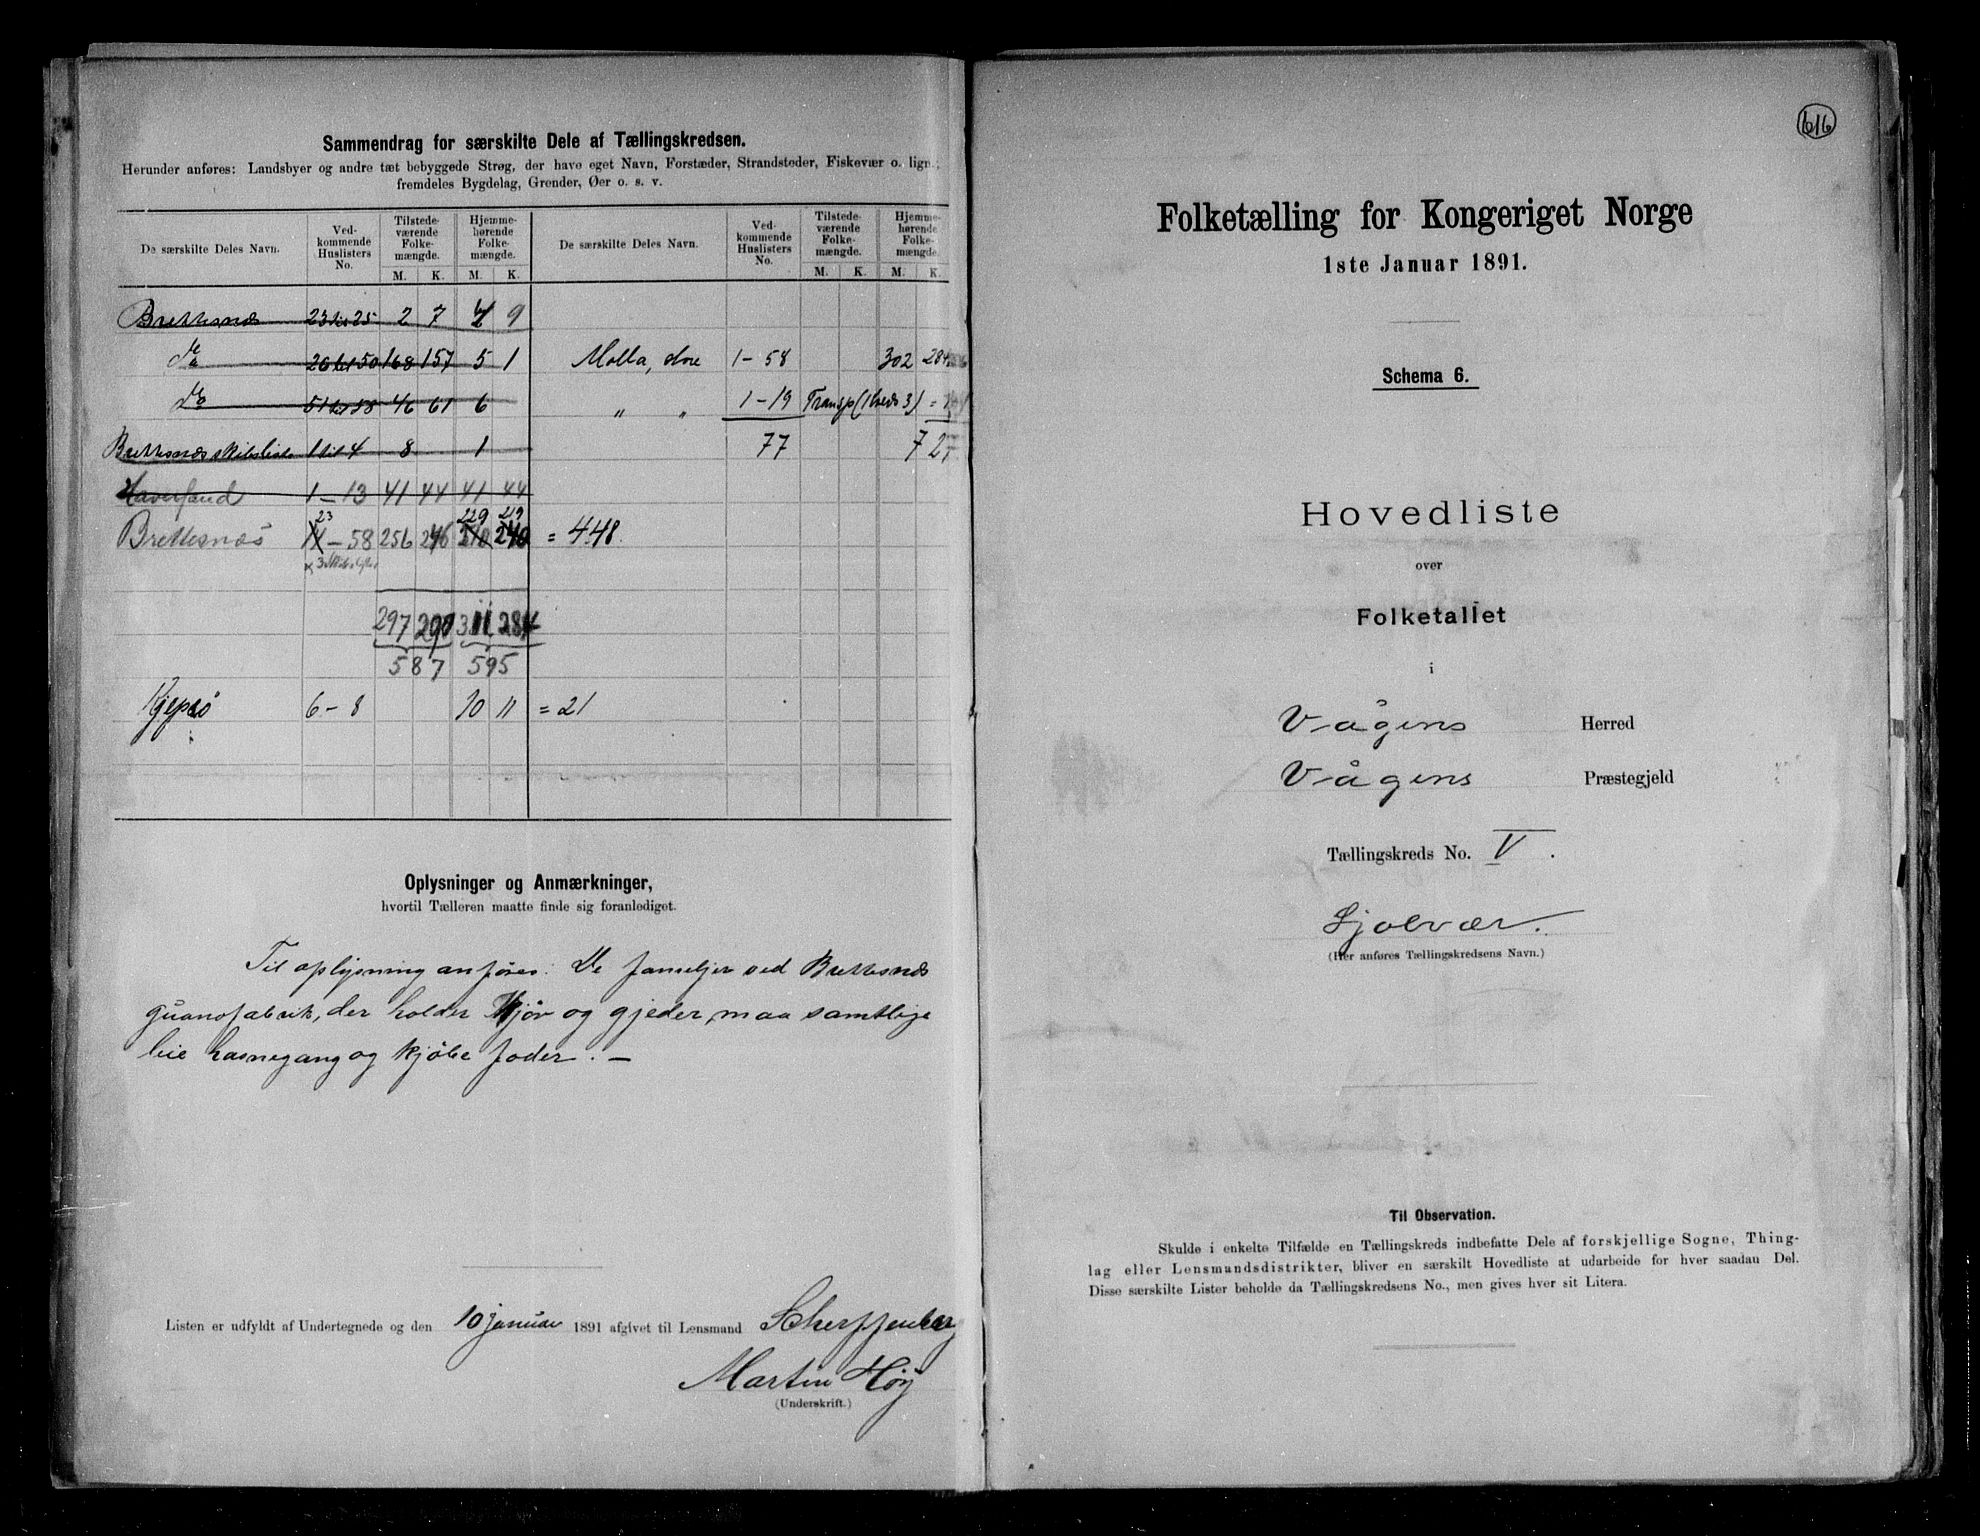 Sammendrag for særskilte Dele af Tællingskredsen.
Herunder anføres: Landsbyer og andre tæt bebyggede Strøg, der have eget Navn, Forstæder, Strandsteder, Fiskevær o. lign.;
fremdeles Bygdelag, Grender, Øer o. s. v.
De særskilte Deles Navn. Ved-kommende Huslisters No. Tilstede-værende Folke-mængde. M. K. Hjemme-hørende Folke-mængde. M. K. De særskilte Deles Navn. Ved-kommende Huslisters No. Tilstede-værende Folke-mængde. M. K. Hjemme-hørende Folke-mængde. M. K.
Brettesnæs 23 til 25 2 7 9
do 26 til 50 168 157 5 1 Molla, store 1-58 302 284
do 51 til 58 46 61 6 " " 1-19 Transp (Kreds 3) =
Brettesnæs skibsliste 1 til 4 8 1 77 727
Haversand 1-13 41 44 41 44
23 229 219
Brettesnæs 14-58 256 246 270 240 = 448
297 290 311 284
587 595
Kjepsö 6-8 10 11 = 21
Oplysninger og Anmærkninger,
hvortil Tælleren maatte finde sig foranlediget.
Til oplysning anføres: De familjer ved Brettesnæs
guanofabrik, der holder Kjör og gjeder, maa samtlige
leie havnegang og kjöbe foder. —
Listen er udfyldt af Undertegnede og den 10 januar 1891 afgivet til Lensmand Scherffenberg
Martin Höy
(Underskrift.)
616
Folketælling for Kongeriget Norge
1ste Januar 1891.
Schema 6.
Hovedliste
over
Folketallet
i
Vågens Herred
Vågens Præstegjeld
Tællingskreds No. V.
Sjolvær.
(Her anføres Tællingskredsens Navn.)
Til Observation.
Skulde i enkelte Tilfælde en Tællingskreds indbefatte Dele af forskjellige Sogne, Thing-
lag eller Lensmandsdistrikter, bliver en særskilt Hovedliste at udarbeide for hver saadan Del.
Disse særskilte Lister beholde da Tællingskredsens No., men gives hver sit Litera.